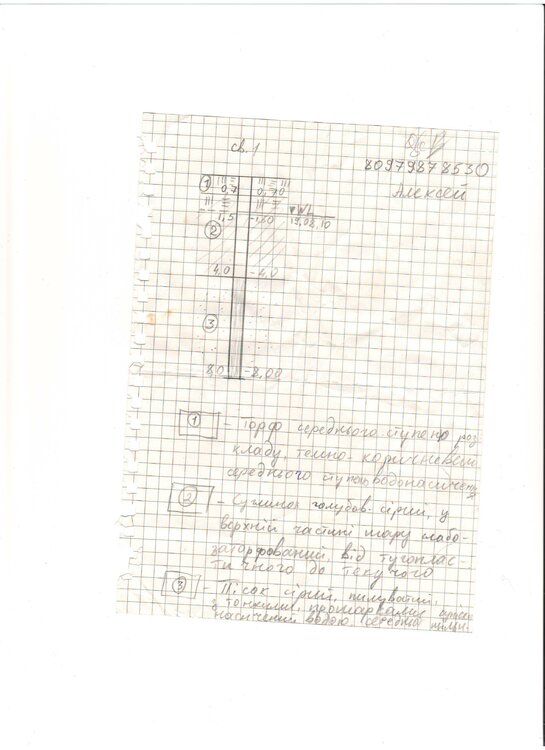 св. 1
80979878530
Алексей
1
0,7 0,70
WL
1,5 -1,50 19.02.10
2
4,0 -4,0
3
8,0 -8,00
1 - Торф середнього ступеню роз
кладу, темно-коричневий
середнього ступ. водонасичення
2 - Суглинок голубов-сірий, у
верхній частині шару слабо-
заторфований, від тугоплас-
тичного до текучого
3 - Пісок сірий, пилуватий,
з тонкими прошарками
насичений водою, середньо